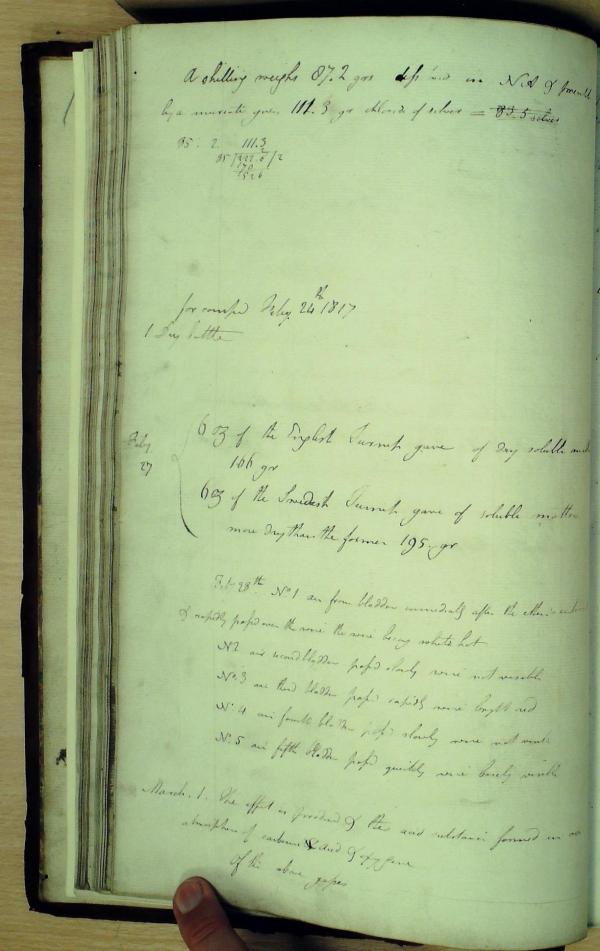 A shilling weighs 87.2 grs diss'd in N.A & precip
by a muriate gives 111.3 gr chloride of silver = 83.5 silver
85 : 2 111.3
2
85/222.6/2
170
526
for comp Feby 24th 1817
1 Day
Feby 27
6 ℥ of the English Turnip gave of dry soluble
166 gr
6 ℥ of the Swedish Turnip gave of soluble matter
more dry than the former 195 gr
Feb 28th No. 1 air from bladder immediately after the
& rapidly passed over the wire the wire being white hot
No 2 air second bladder passed slowly wire not visible
No. 3 air third bladder passed rapidly wire bright red
No. 4 air fourth bladder passed slowly wire not visible
No. 5 air fifth bladder passed quickly wire barely visible
March. 1. The effect is produced & the acid substance formed in an
atmosphere of carbonic acid & oxygene
Of the above gases